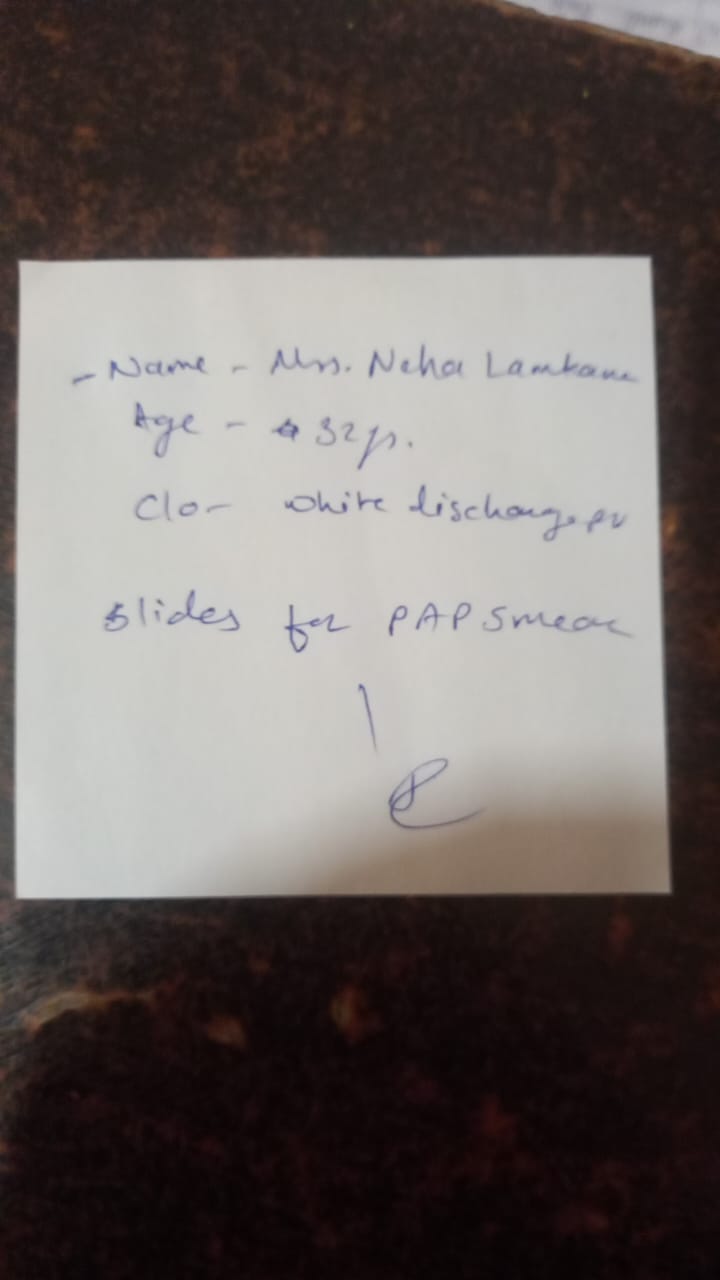 - Name - Mrs. Neha
Age - 32 yr.
C/o - white discharge pv
Slides for PAP Smear